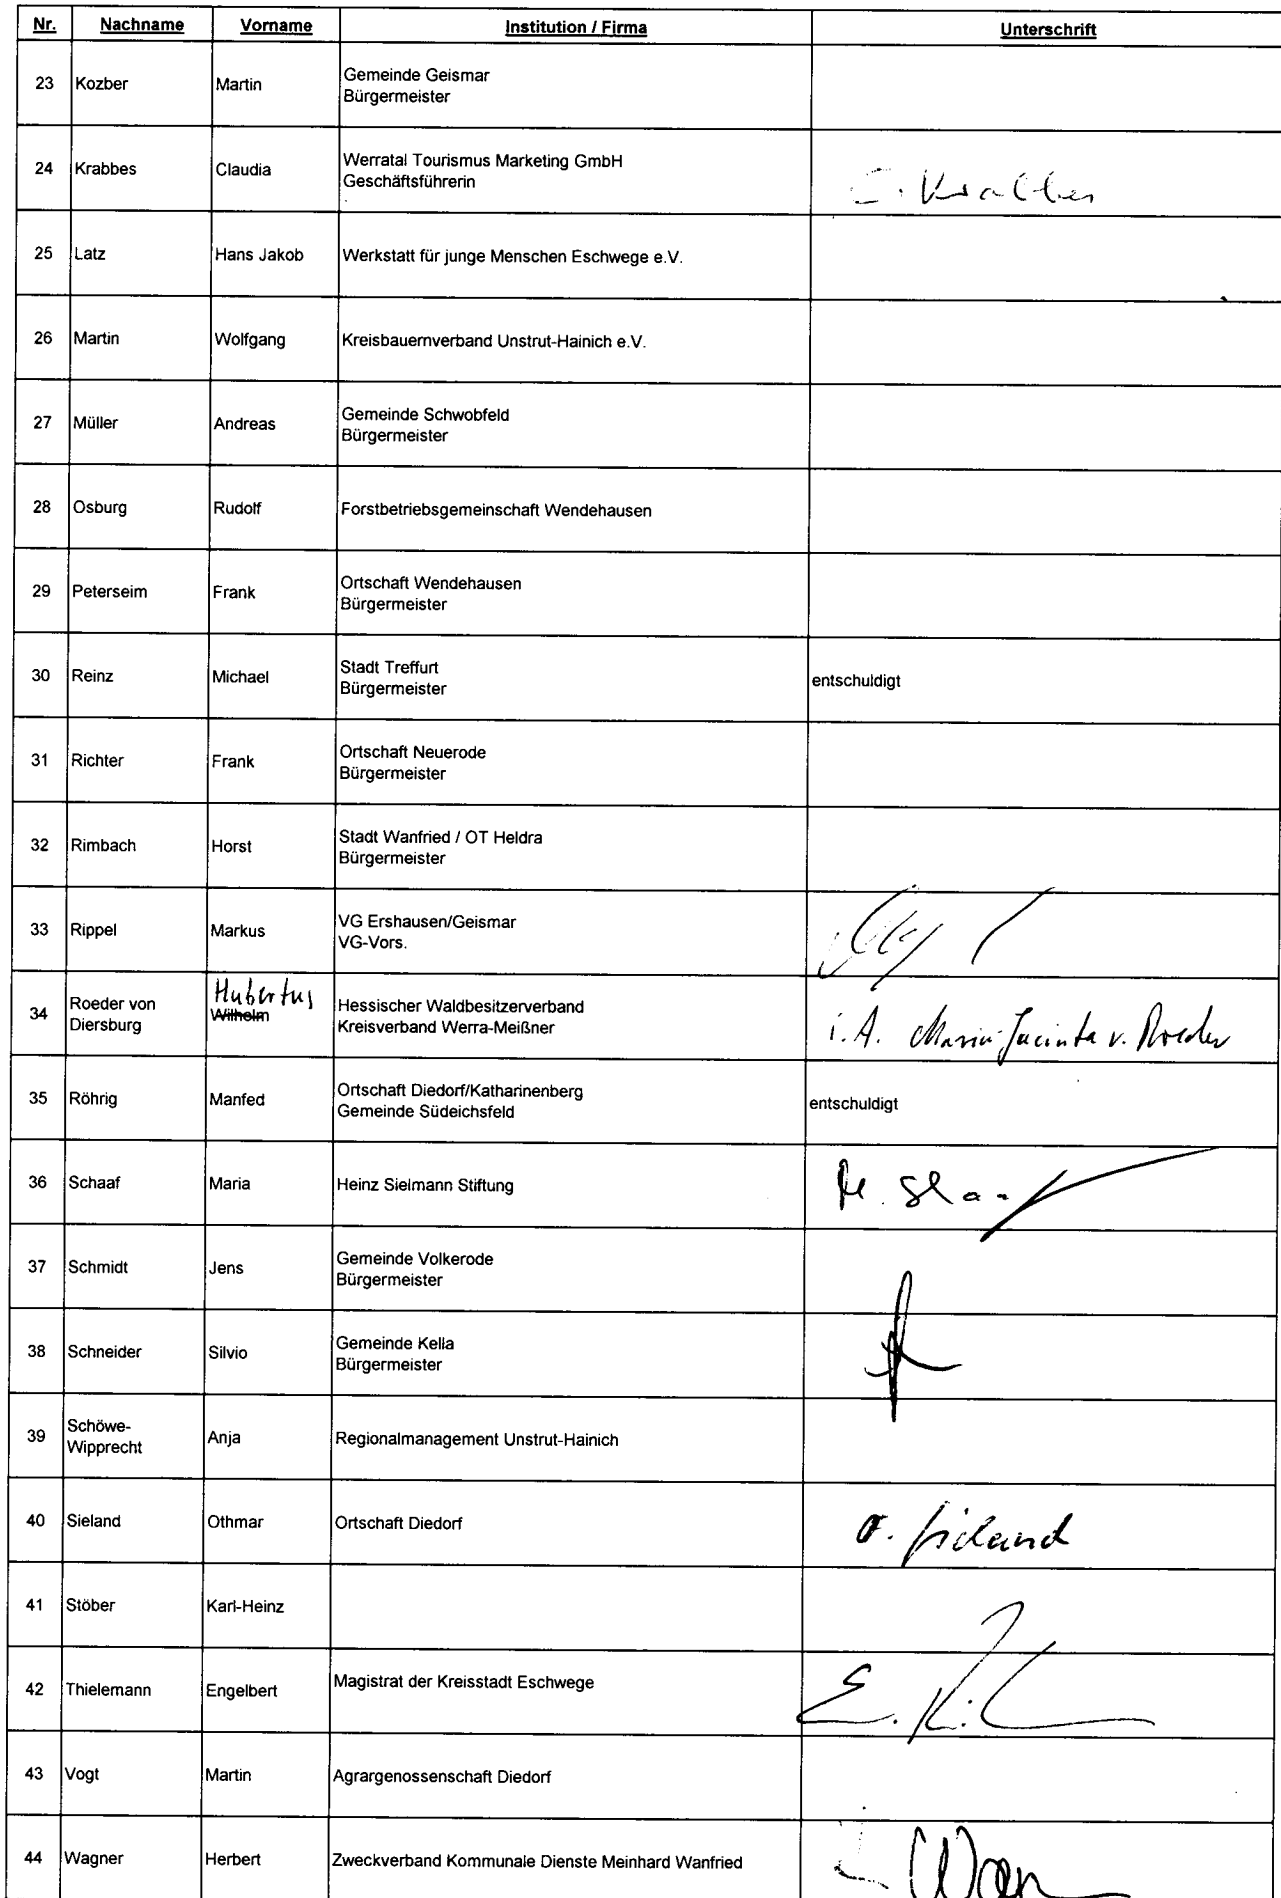 Nr. Nachname Vorname Institution / Firma Unterschrift
23 Kozber Martin Gemeinde Geismar
Bürgermeister
24 Krabbes Claudia Werratal Tourismus Marketing GmbH
Geschäftsführerin
C. Krabbes
25 Latz Hans Jakob Werkstatt für junge Menschen Eschwege e.V.
26 Martin Wolfgang Kreisbauernverband Unstrut-Hainich e.V.
27 Müller Andreas Gemeinde Schwobfeld
Bürgermeister
28 Osburg Rudolf Forstbetriebsgemeinschaft Wendehausen
29 Peterseim Frank Ortschaft Wendehausen
Bürgermeister
30 Reinz Michael Stadt Treffurt
Bürgermeister
entschuldigt
31 Richter Frank Ortschaft Neuerode
Bürgermeister
32 Rimbach Horst Stadt Wanfried / OT Heldra
Bürgermeister
33 Rippel Markus VG Ershausen/Geismar
VG-Vors.
Hubertus
34 Roeder von Wilhelm Hessischer Waldbesitzerverband
Diersburg Kreisverband Werra-Meißner
i. A. Maria Jacinta v. Roeder
35 Röhrig Manfed Ortschaft Diedorf/Katharinenberg
Gemeinde Südeichsfeld
entschuldigt
36 Schaaf Maria Heinz Sielmann Stiftung
M. Schaaf
37 Schmidt Jens Gemeinde Volkerode
Bürgermeister
38 Schneider Silvio Gemeinde Kella
Bürgermeister
39 Schöwe- Anja Regionalmanagement Unstrut-Hainich
Wipprecht
40 Sieland Othmar Ortschaft Diedorf O. Sieland
41 Stöber Karl-Heinz
42 Thielemann Engelbert Magistrat der Kreisstadt Eschwege
43 Vogt Martin Agrargenossenschaft Diedorf
44 Wagner Herbert Zweckverband Kommunale Dienste Meinhard Wanfried